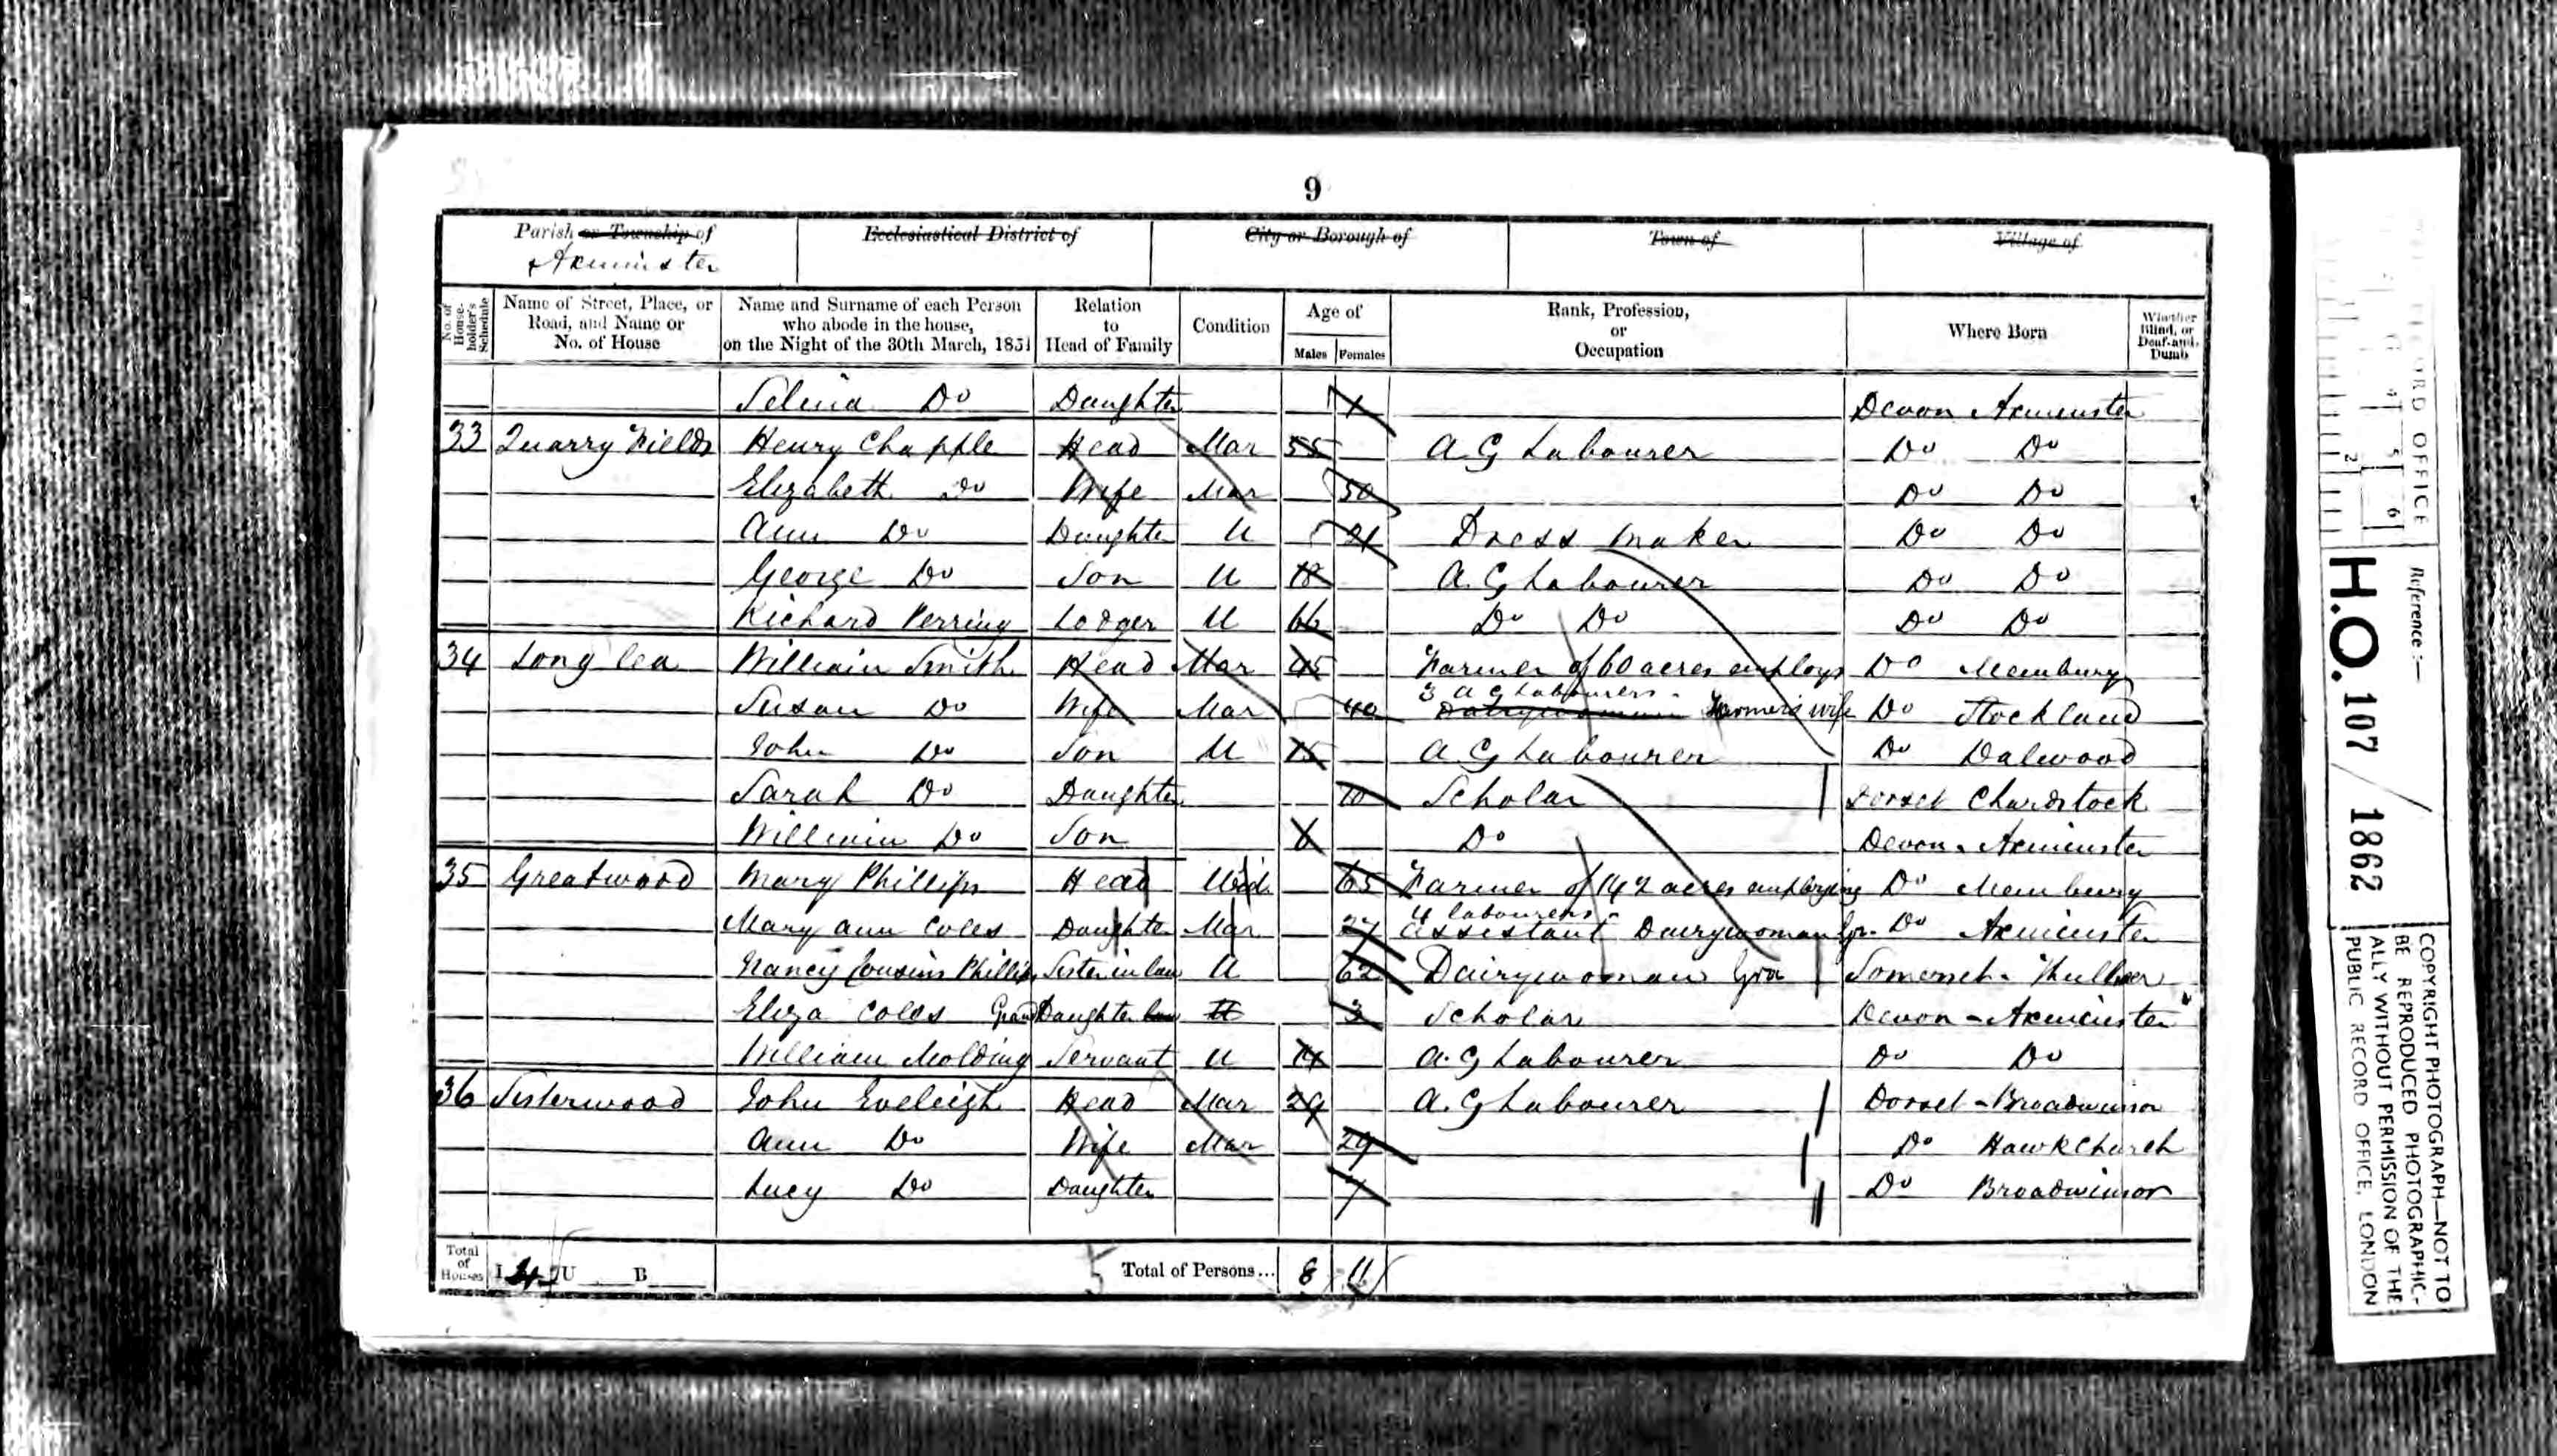 9
Parish or Township of
Axminster
Ecclesiastical District of
City or Borough of
Town of
Village of
No. of House-holder's Schedule
Name of Street, Place, or Road, and Name or No. of House
Name and Surname of each Person who abode in the house, on the Night of the 30th March, 1851
Relation to Head of Family
Condition
Age of
Males Females
Rank, Profession, or Occupation
Where Born
Whether Blind, or Deaf-and-Dumb
Selina Do Daughter 1 Devon Axminster
33 Quarry Fields Henry Chapple Head Mar 55 A G Labourer Do Do
Elizabeth Do Wife Mar 50 Do Do
Ann Do Daughter U 21 Dress Maker Do Do
George Do Son U 18 A. G Labourer Do Do
Richard Perring Lodger U 66 Do Do Do Do
34 Long lea William Smith Head Mar 45 Farmer of 60 acres employs Do Membury
3 a g Labourers
Susan Do Wife Mar 40 Dairywoman Farmers wife Do Stockland
John Do Son U 15 A G Labourer Do Dalwood
Sarah Do Daughter 10 Scholar Dorset Chardstock
William Do Son 6 Do Devon - Axminster
35 Greatwood Mary Phillips Head Wid 65 Farmer of 142 acres employing Do Membury
4 labourers
Mary Ann Coles Daughter Mar 27 Assistant Dairywoman Do Axminster
Nancy Cousins Phillips Sister in law U 62 Dairywoman Somerset
Eliza Coles Grand Daughter law U 3 Scholar Devon - Axminster
William Molding Servant U 14 A. G Labourer Do Do
36 Sisterwood John Eveleigh Head Mar 29 A. G Labourer Dorset - Broadwinsor
Ann Do Wife Mar 29 Do Hawkchurch
Lucy Do Daughter 7 Do Broadwinsor
Total of Houses I 4 U B Total of Persons... 8 11
RD OFFICE
Reference :—
H.O. 107 / 1862
COPYRIGHT PHOTOGRAPH—NOT TO
BE REPRODUCED PHOTOGRAPHIC-
ALLY WITHOUT PERMISSION OF THE
PUBLIC RECORD OFFICE, LONDON